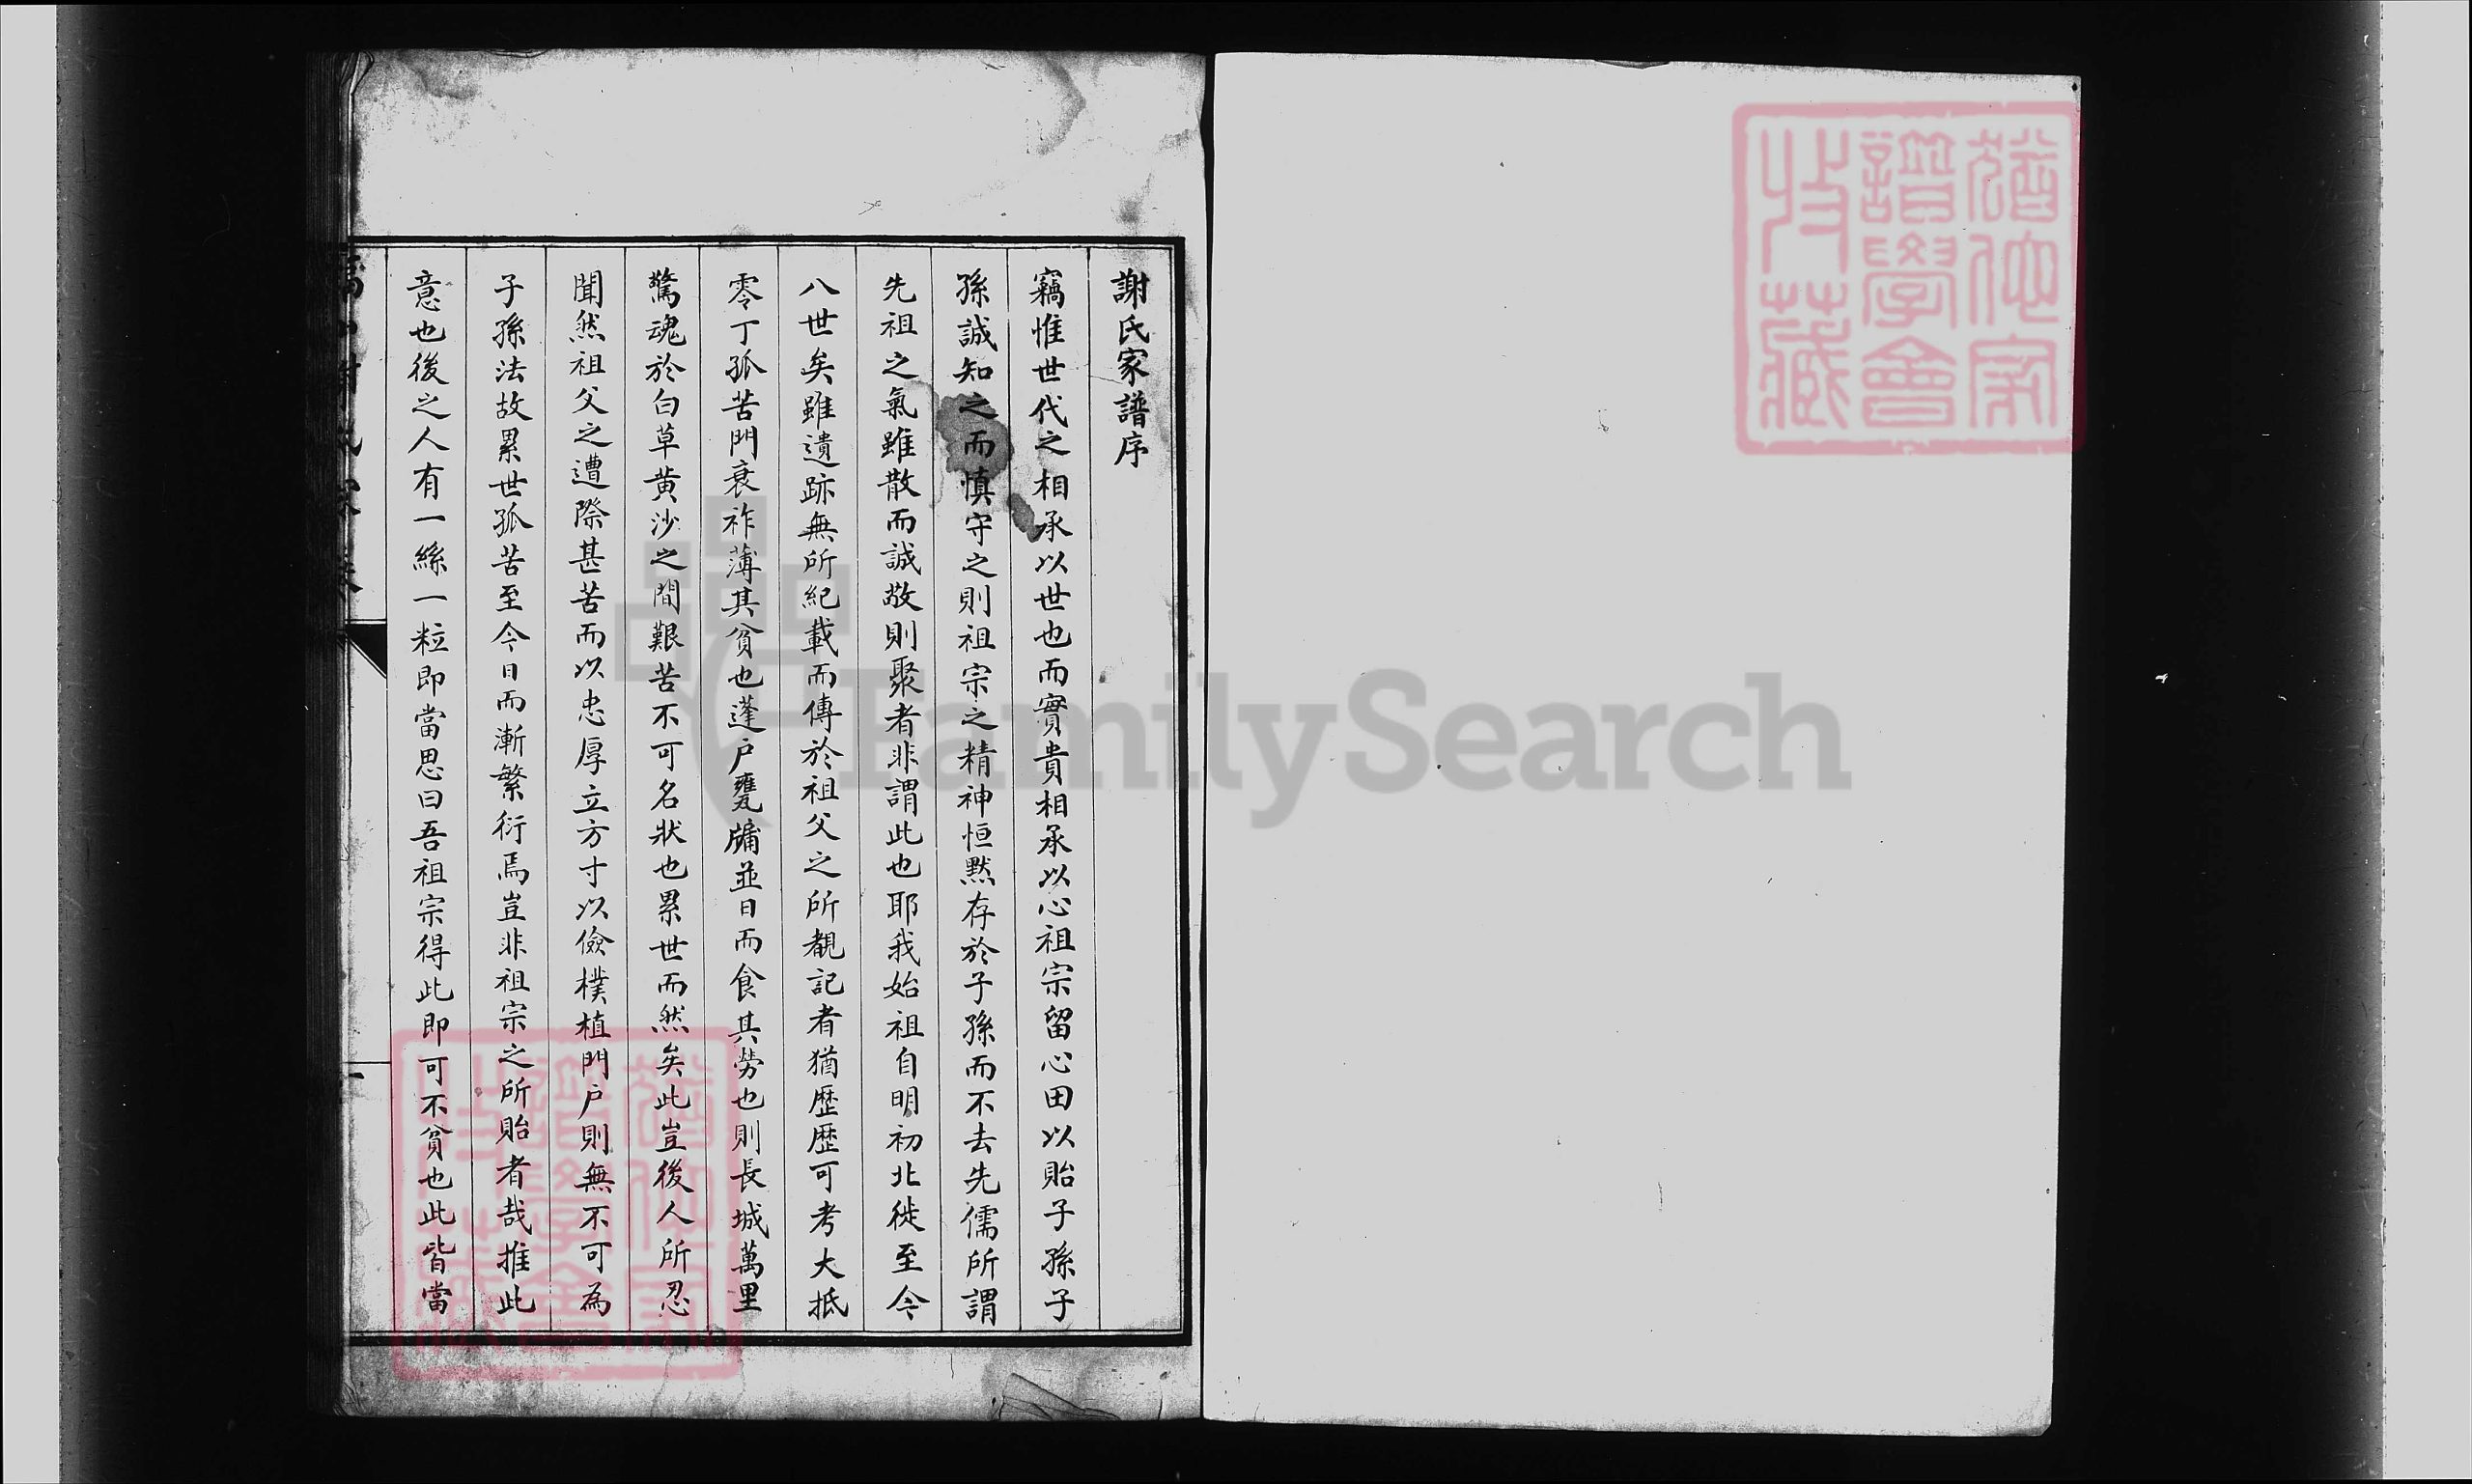 謝氏家譜序
竊惟世代之相承以世也而實貴相承以心祖宗留心田以貽子孫子
孫誠知之而慎守之則祖宗之精神恒默存於子孫而不去先儒所謂
先祖之氣雖散而誠敬則聚者非謂此也耶我始祖自明初北徙至今
八世矣雖遺跡無所紀載而傳於祖父之所覩記者猶歷歷可考大抵
零丁孤苦門衰祚薄其貧也蓬户甕牖並日而食其勞也則長城萬里
驚魂於白草黄沙之間艱苦不可名狀也累世而然矣此豈後人所忍
聞然祖父之遭際甚苦而以忠厚立方寸以儉樸植門户則無不可為
子孫法故累世孤苦至今日而漸繁衍焉豈非祖宗之所貽者哉推此
意也後之人有一絲一粒即當思曰吾祖宗得此即可不貧也此皆當
一
猶他家
譜學會
收藏
FamilySearch
猶他家
譜學會
收藏